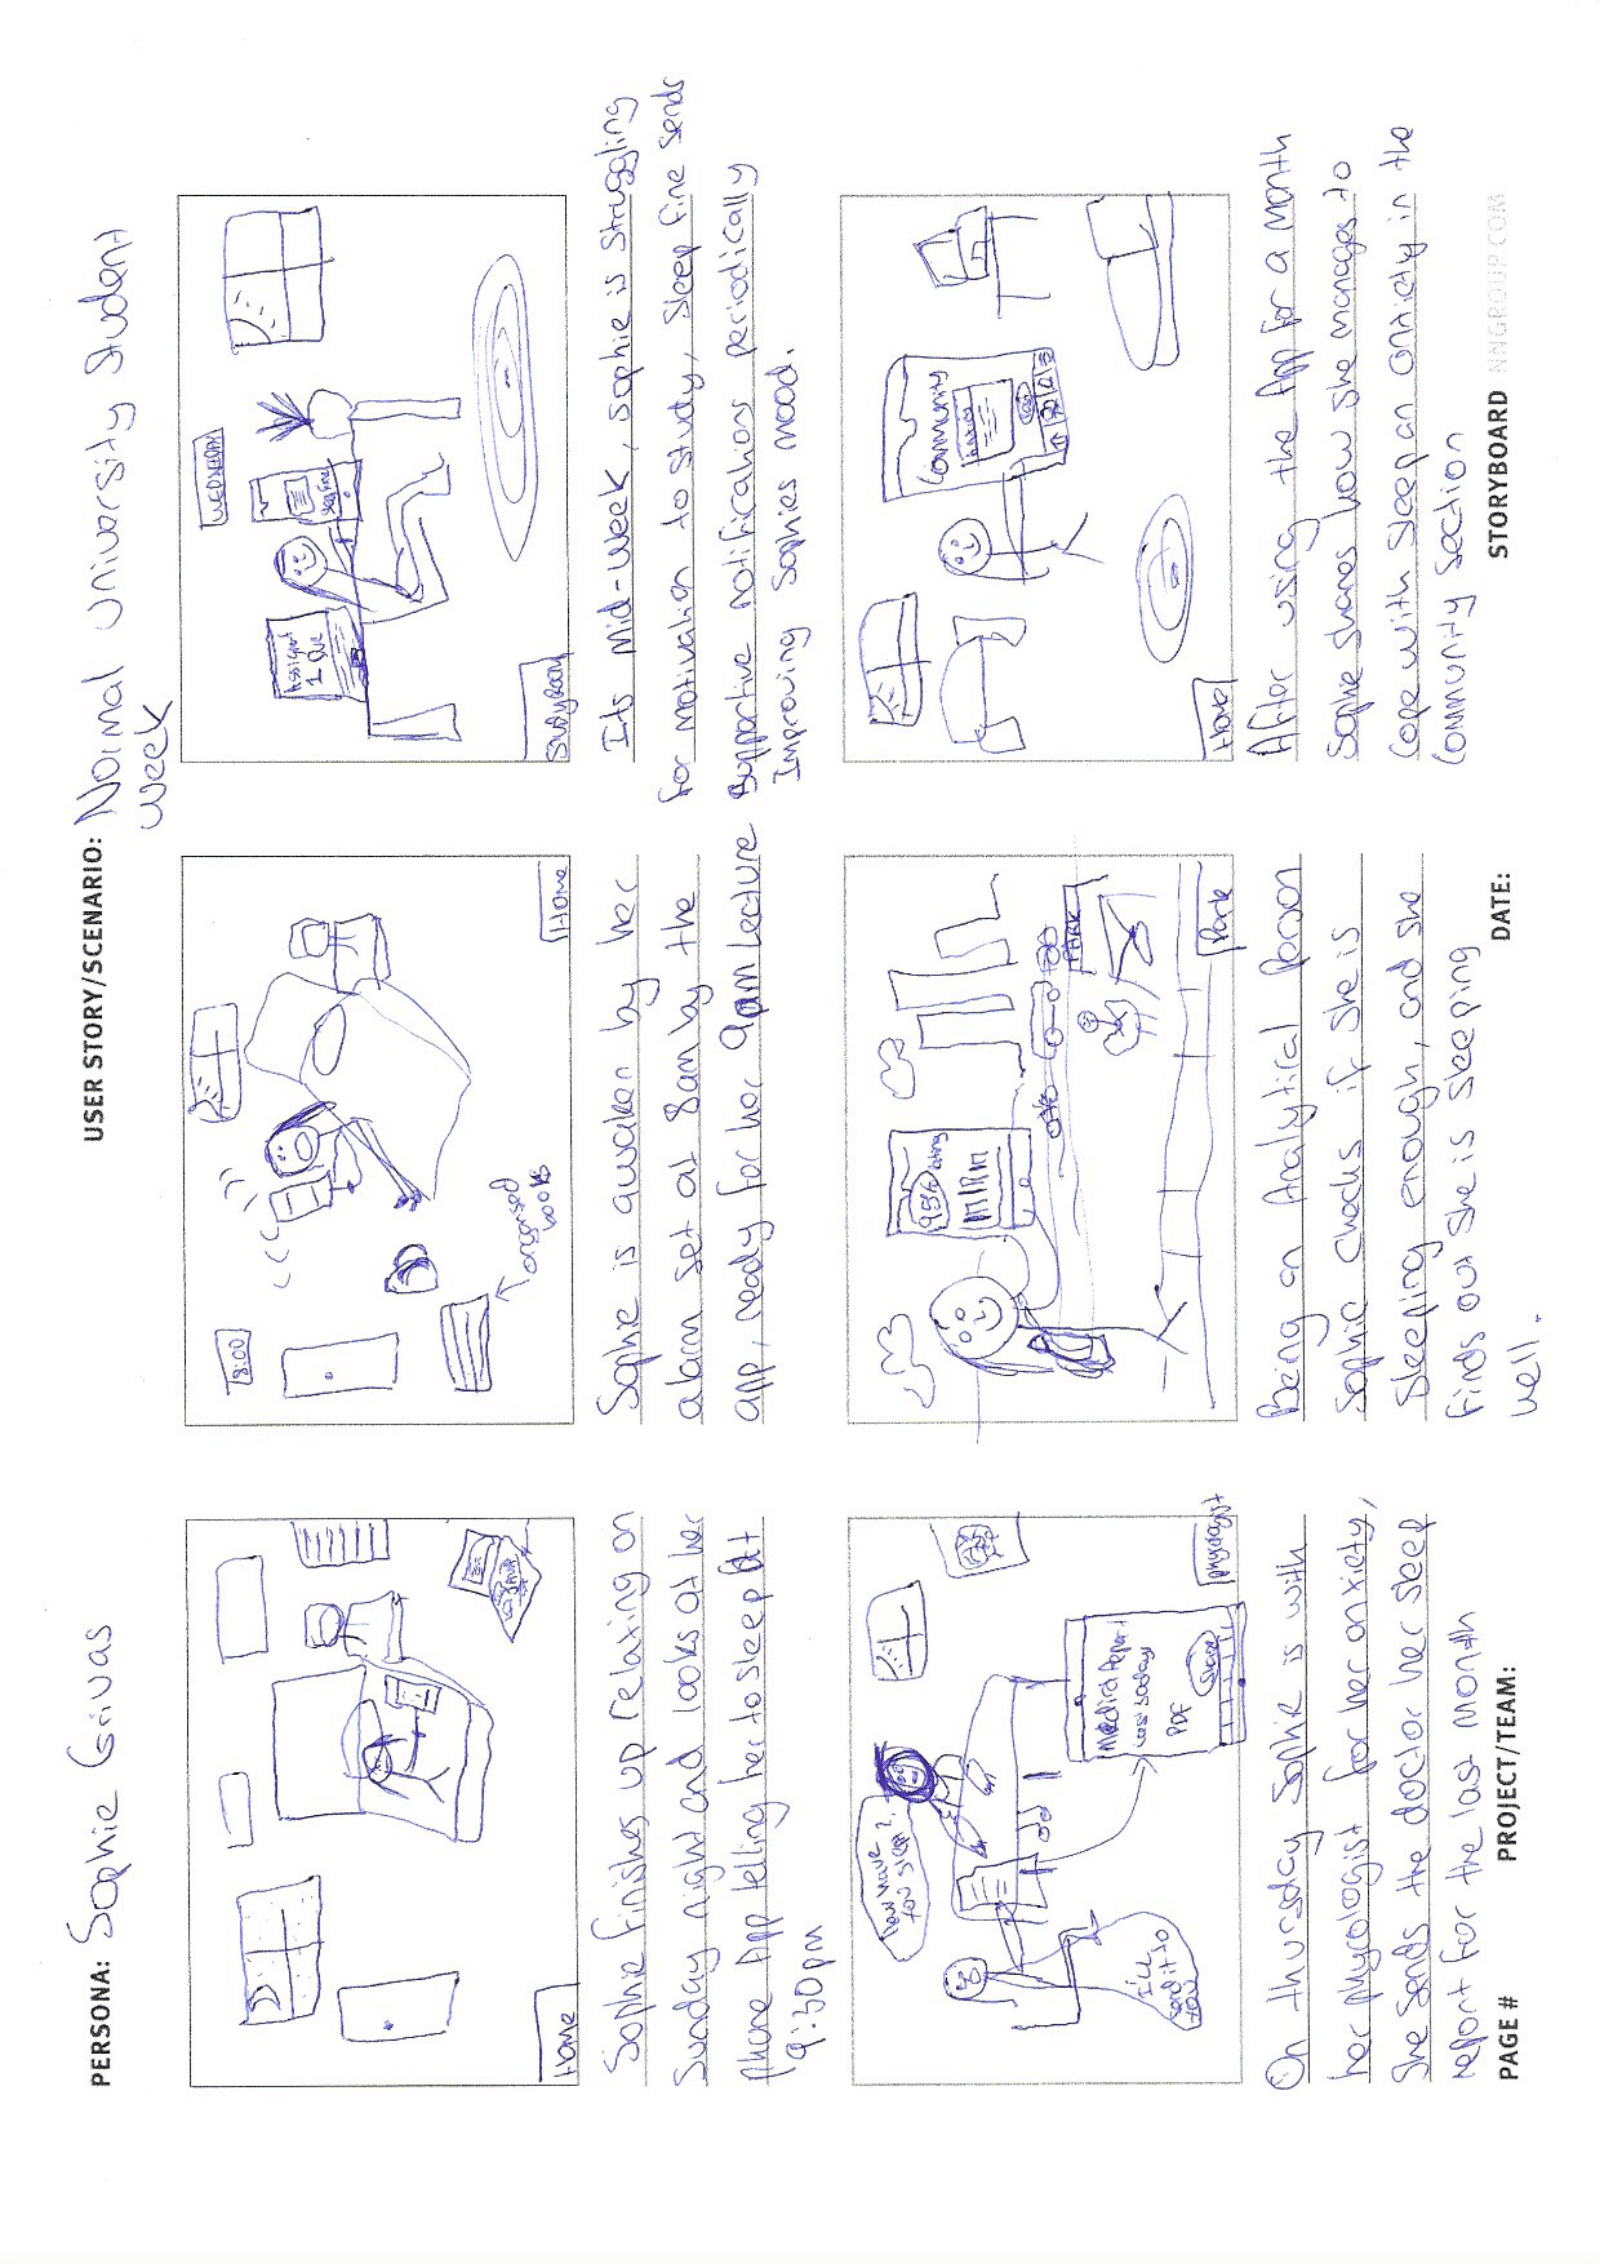 PERSONA: Sophie Grivas
USER STORY/SCENARIO: Normal University Student
week
Home
Sophie finishes up relaxing on
Sunday night and looks at her
phone App telling her to sleep at
9:30pm
8:00
organised
books
Home
Sophie is awaken by her
alarm set at 8am by the
app, ready for her 9am lecture
WEDNESDAY
Assignment
1 Due
Sleep Fine
Study Room
Its Mid-week, Sophie is struggling
for motivation to study, Sleep Fine sends
Supportive notifications periodically
Improving Sophies mood.
how have
you slept?
I'll
send it to
you
Medical Report
last 30 days
PDF
Share
phycologist
On thursday Sophie is with
her phycologist for her anxiety,
She Sends the doctor her sleep
report for the last month
95%
PARK
Park
Being an Analytical Person
Sophie checks if she is
Sleeping enough, and she
finds out she is sleeping
well.
Community
Home
After using the App for a month
Sophie shares how she manages to
Cope with Sleep an anxiety in the
Community Section
PAGE #
PROJECT/TEAM:
DATE:
STORYBOARD NNGROUP.COM